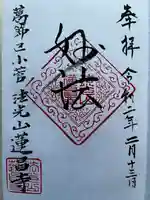 奉拝 令和二年二月十三日
妙法
葛飾区小菅 法光山 蓮昌寺